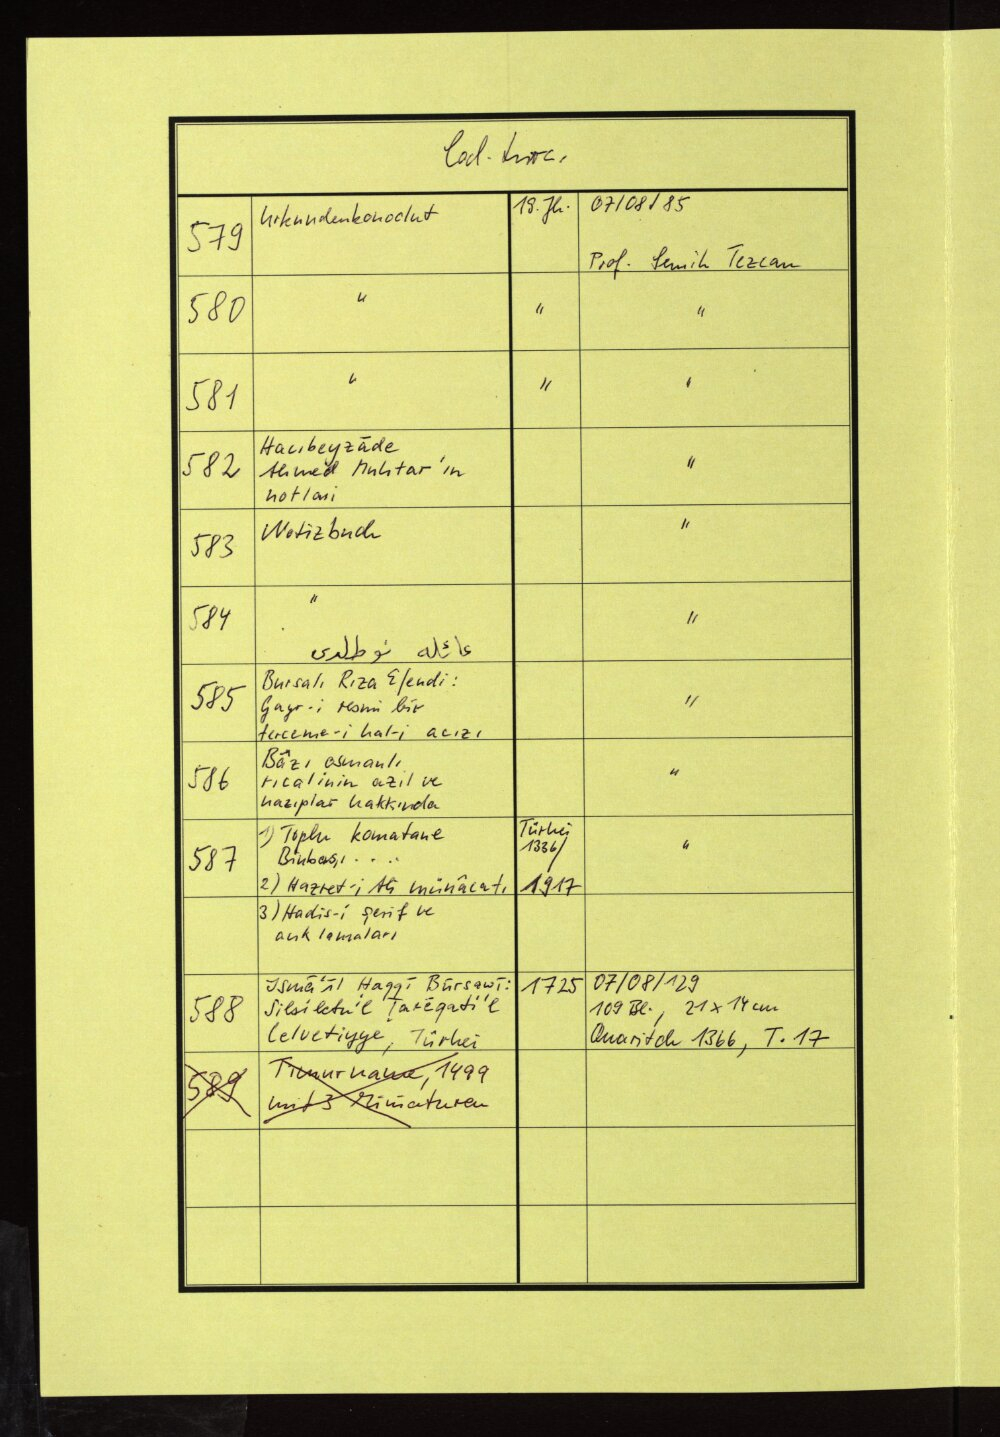 Cod. turc.
579 Urkundenkonvolut 19. Jh. 07/08/85
Prof. Semih Tezcan
580 " " "
581 " " "
582 Hacıbeyzāde "
Ahmed Muhtar'ın
notları
583 Notizbuch "
584 " "
عائله نوطلرى
585 Bursalı Rıza Efendi: "
Gayr-i resmi bir
terceme-i hal-i acızı
586 Bāzı osmanlı "
ricalinin azil ve
nasıpları hakkında
587 1) Toplu Türkei "
Binbaşı . . . . 1336/
2) Hazret-i Ali münācatı 1917
3) Hadis-i şerif ve
588 Ismā'īl Haqqī Bursawī: 1725 07/08/129
Silsiletü'l Ṭarēqati'l 109 Bl., 21 x 14 cm
Celvetiyye, Türkei Quaritch 1366, T. 17
589 Timurname, 1499
mit 3 Miniaturen